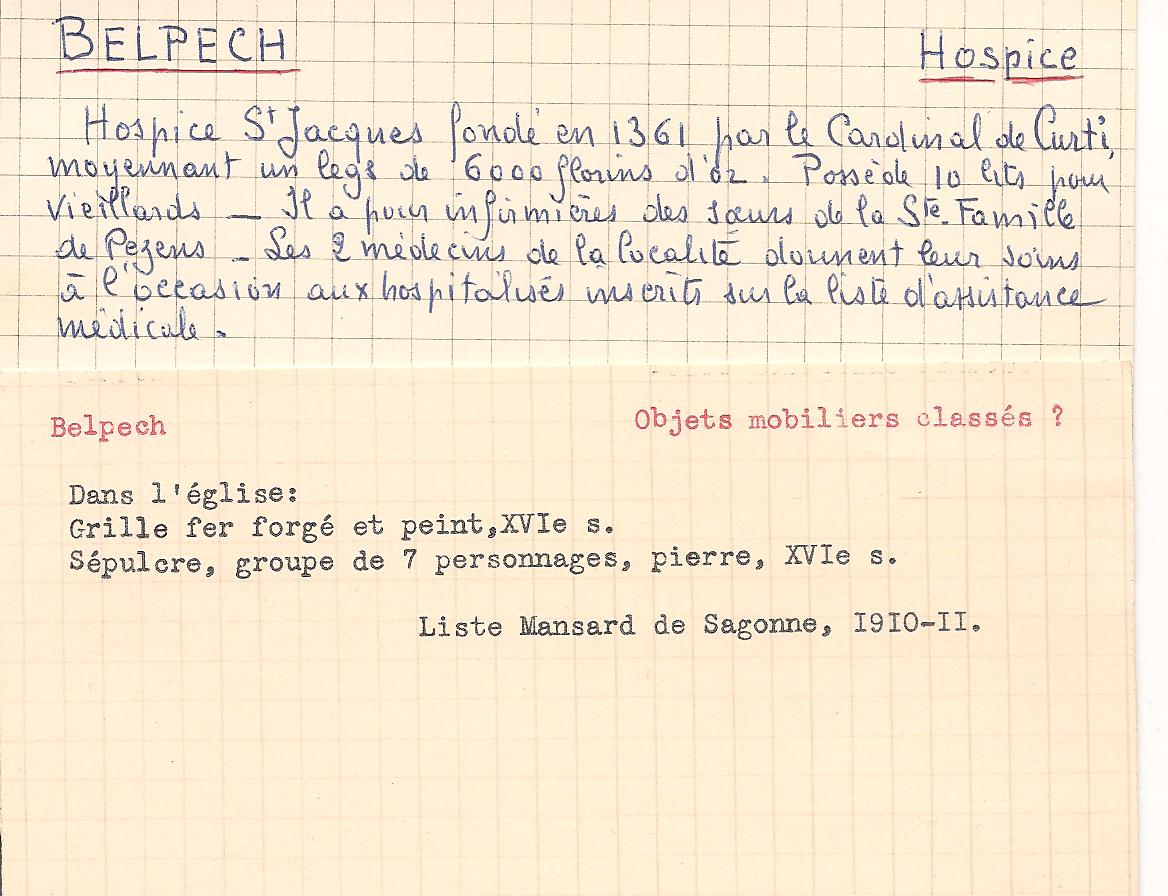 BELPECH Hospice
Hospice St Jacques fondé en 1361 par le Cardinal de Curti,
moyennant un legs de 6000 florins d'or. Possède 10 lits pour
vieillards _ Il a pour infirmières des sœurs de la Ste Famille
de Pezens _ Les 2 médecins de la localité donnent leur soins
à l'occasion aux hospitalisés inscrits sur la liste d'assistance
médicale.
Belpech Objets mobiliers classés ?
Dans l'église:
Grille fer forgé et peint,XVIe s.
Sépulcre, groupe de 7 personnages, pierre, XVIe s.
Liste Mansard de Sagonne, I9I0-II.